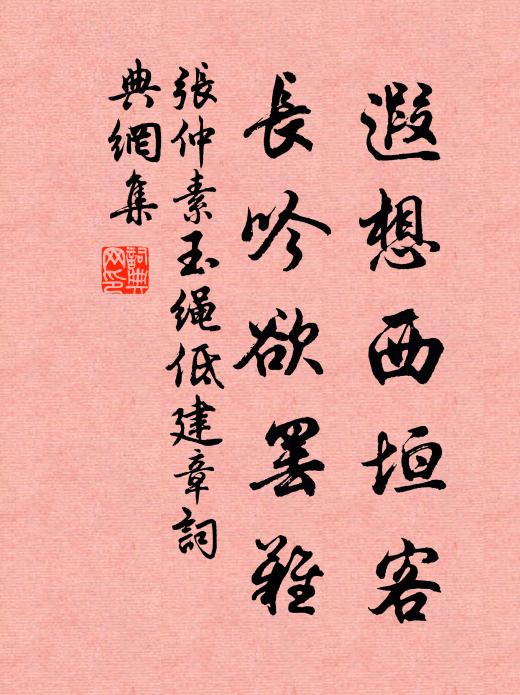 遐想西垣客
長吟欲罢難
張仲素玉繩低建章詞
典網集
詞典
网印